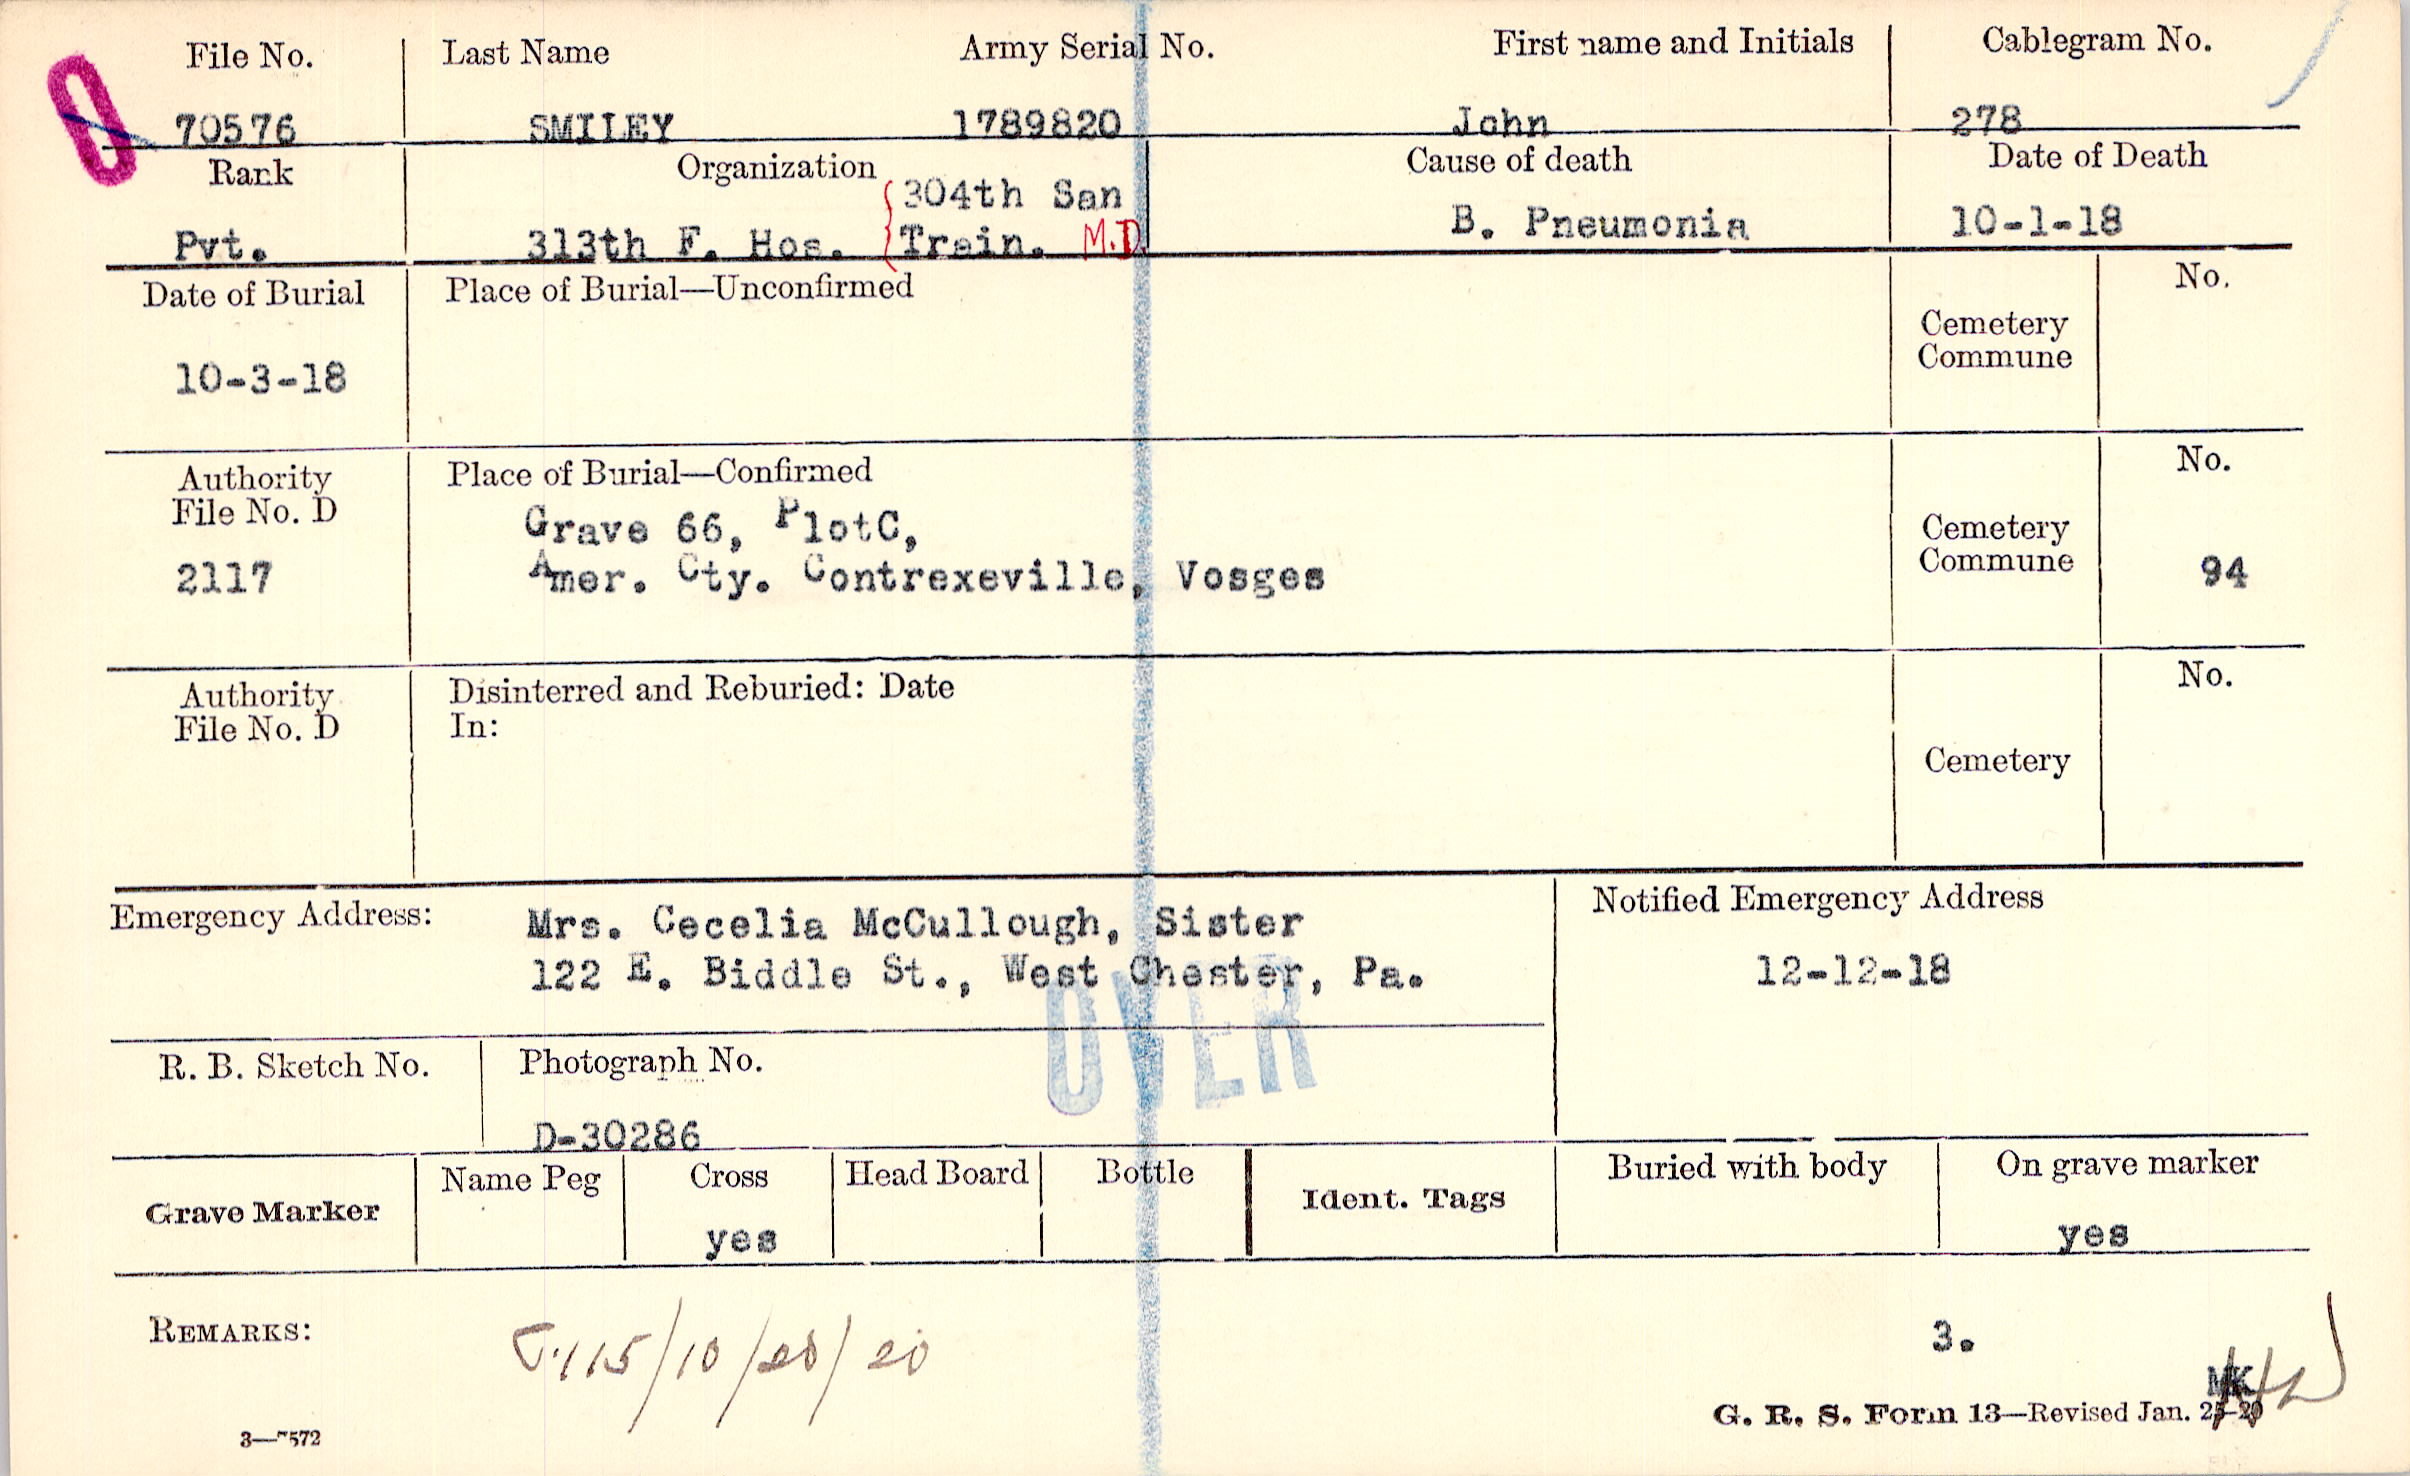 File No. Last Name Army Serial No. First name and Initials Cablegram No.
70576 SMILEY 1789820 John 278
Rank Organization Cause of death Date of Death
Pvt. 313th F. Hos. {304th San Train. M.D. B. Pneumonia 10-1-18
Date of Burial Place of Burial—Unconfirmed No.
Cemetery
Commune
10-3-18
Authority Place of Burial—Confirmed No.
File No. D
Grave 66, PlotC,
Cemetery
Commune
2117 Amer. Cty. Contrexeville, Vosges 94
Authority Disinterred and Reburied: Date No.
File No. D In:
Cemetery
Emergency Address: Mrs. Cecelia McCullough, Sister Notified Emergency Address
122 E. Biddle St., West Chester, Pa. 12-12-18
OVER
R. B. Sketch No. Photograph No.
D-30286
Grave Marker Name Peg Cross Head Board Bottle Ident. Tags Buried with body On grave marker
yes yes
REMARKS: 115/10/28/20 3.
MK
G. R. S. Form 13—Revised Jan.
3—7572